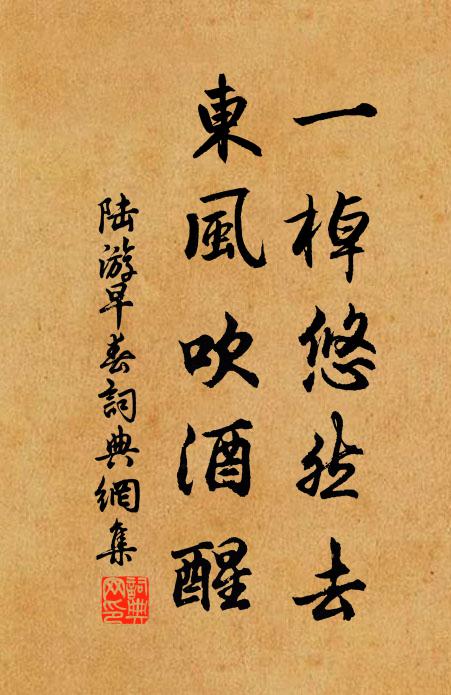 一棹悠然去
東風吹酒醒
陆游早春詞典網集
詞典网印